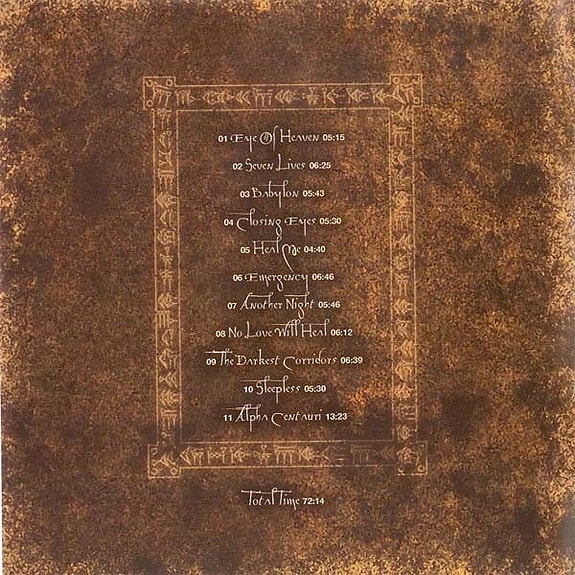 01 Eye Of Heaven 05:15
02 Seven Lives 06:25
03 Babylon 05:43
04 Closing Eyes 05:30
05 Heal Me 04:40
06 Emergency 06:46
07 Another Night 05:46
08 No Love Will Heal 06:12
09 The Darkest Corridors 06:39
10 Sleepless 05:30
11 Alpha Centauri 13:23
Total Time 72:14